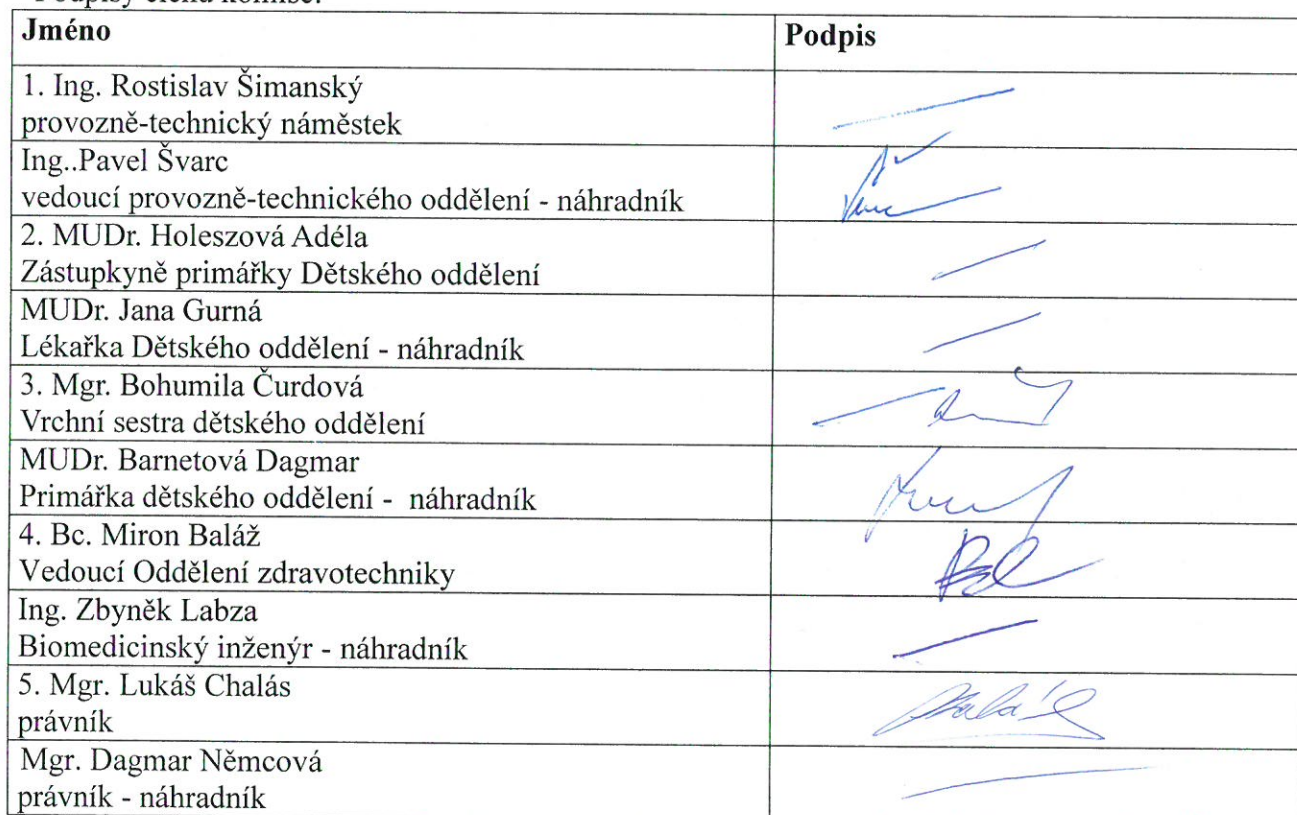 Podpisy členů komise:
Jméno
Podpis
1. Ing. Rostislav Šimanský
provozně-technický náměstek
Ing..Pavel Švarc
vedoucí provozně-technického oddělení - náhradník
2. MUDr. Holeszová Adéla
Zástupkyně primářky Dětského oddělení
MUDr. Jana Gurná
Lékařka Dětského oddělení - náhradník
3. Mgr. Bohumila Čurdová
Vrchní sestra dětského oddělení
MUDr. Barnetová Dagmar
Primářka dětského oddělení - náhradník
4. Bc. Miron Baláž
Vedoucí Oddělení zdravotechniky
Ing. Zbyněk Labza
Biomedicinský inženýr - náhradník
5. Mgr. Lukáš Chalás
právník
Mgr. Dagmar Němcová
právník - náhradník